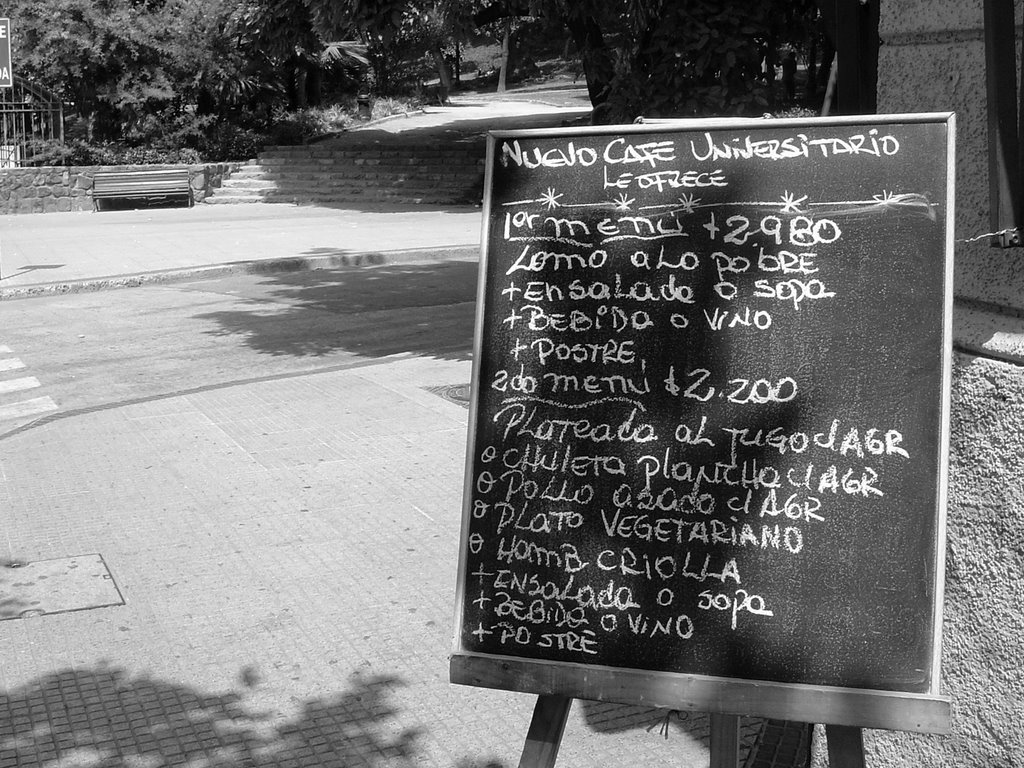 E
DA
NUEVO CAFE UNIVERSITARIO
LE OFRECE
1er menú $2.980
LOMO a LO pobRE
+ ENSALADA o sopa
+ BEBIDA o VINO
+ POSTRE
2do menú $2.200
PLATEADA AL JUGO c/AGR
o CHULETA plancha c/AGR
o POLLO asado c/AGR
o PLATO VEGETARIANO
o HAMB CRIOLLA
+ ENSALADA o sopa
+ BEBIDA o VINO
+ POSTRE